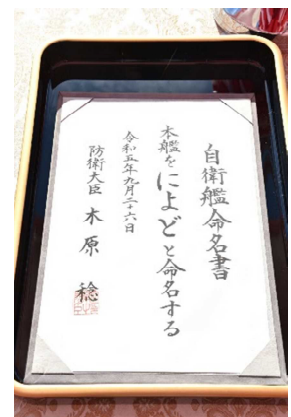 自衛艦命名書
本艦をによどと命名する
令和五年九月二十六日
防衛大臣 木原 稔